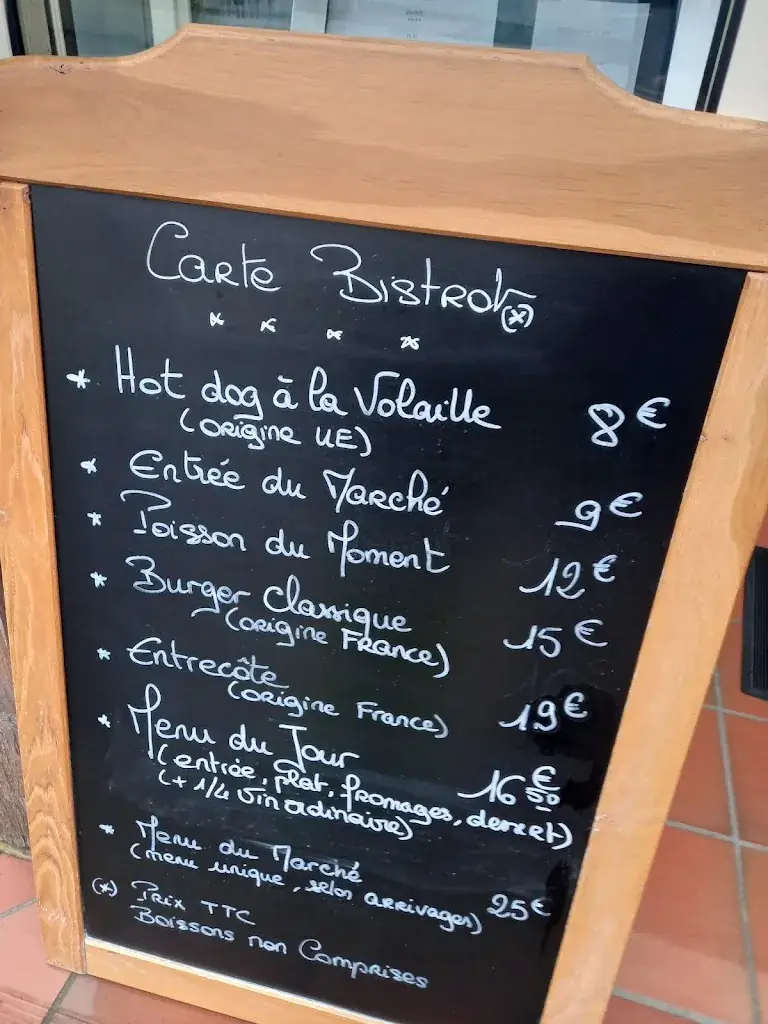 Carte Bistrot (*)
* * * *
* Hot dog à la Volaille 8€
(origine UE)
* Entrée du Marché 9€
* Poisson du Moment 12€
* Burger classique 15€
(origine France)
* Entrecôte 19€
(origine France)
* Menu du Jour 16€50
(entrée, plat, fromages, dessert)
(+ 1/4 vin ordinaire)
* Menu du Marché 25€
(menu unique, selon arrivages)
(*) Prix TTC
Boissons non Comprises